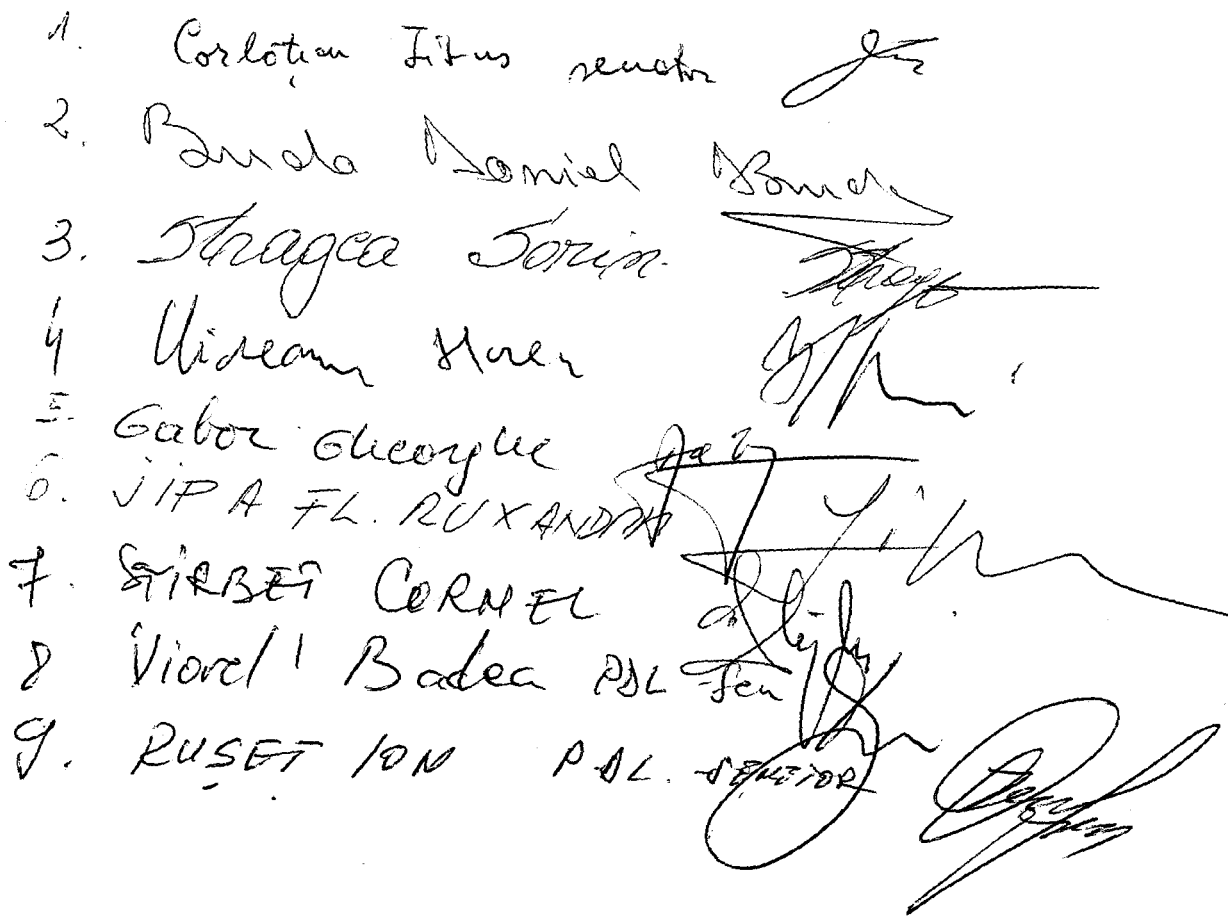 1. Corlățean Titus senator
2. Buda Daniel Buda
3. Stragea Sorin
4 Uioreanu Horea
5. Gabor Gheorghe
6. JIPA FL. RUXANDRA
7. ȘTIRBEȚ CORNEL
8 Viorel Badea PDL - Sen
9. RUȘEȚ ION PDL. - SENATOR